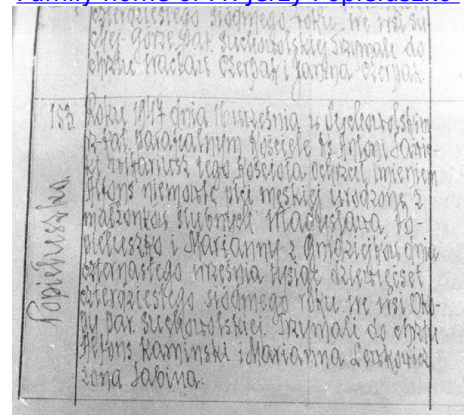 Family home of Fr. Jerzy Popiełuszko
czterdziestego siódmego roku, we wsi Su
chej Górze par. Suchowolskiej Trzymali do
chrztu Wacław Czerpak i Janina Czerpak.
153. Roku 1947 dnia 16 września w Suchowolskim
rz.-kat. parafialnym kościele ks. Antoni
wikariusz tego kościoła ochrzcił imieniem
Alfons niemowlę płci męskiej urodzone z
małżonków ślubnych Władysława Po-
piełuszko i Marianny z Gniedziejków dnia
czternastego września tysiąc dziewięćset
czterdziestego siódmego roku we wsi Oko-
py par. Suchowolskiej Trzymali do chrztu
Alfons Kamiński i Marianna
żona Sabina.
Popiełuszko.